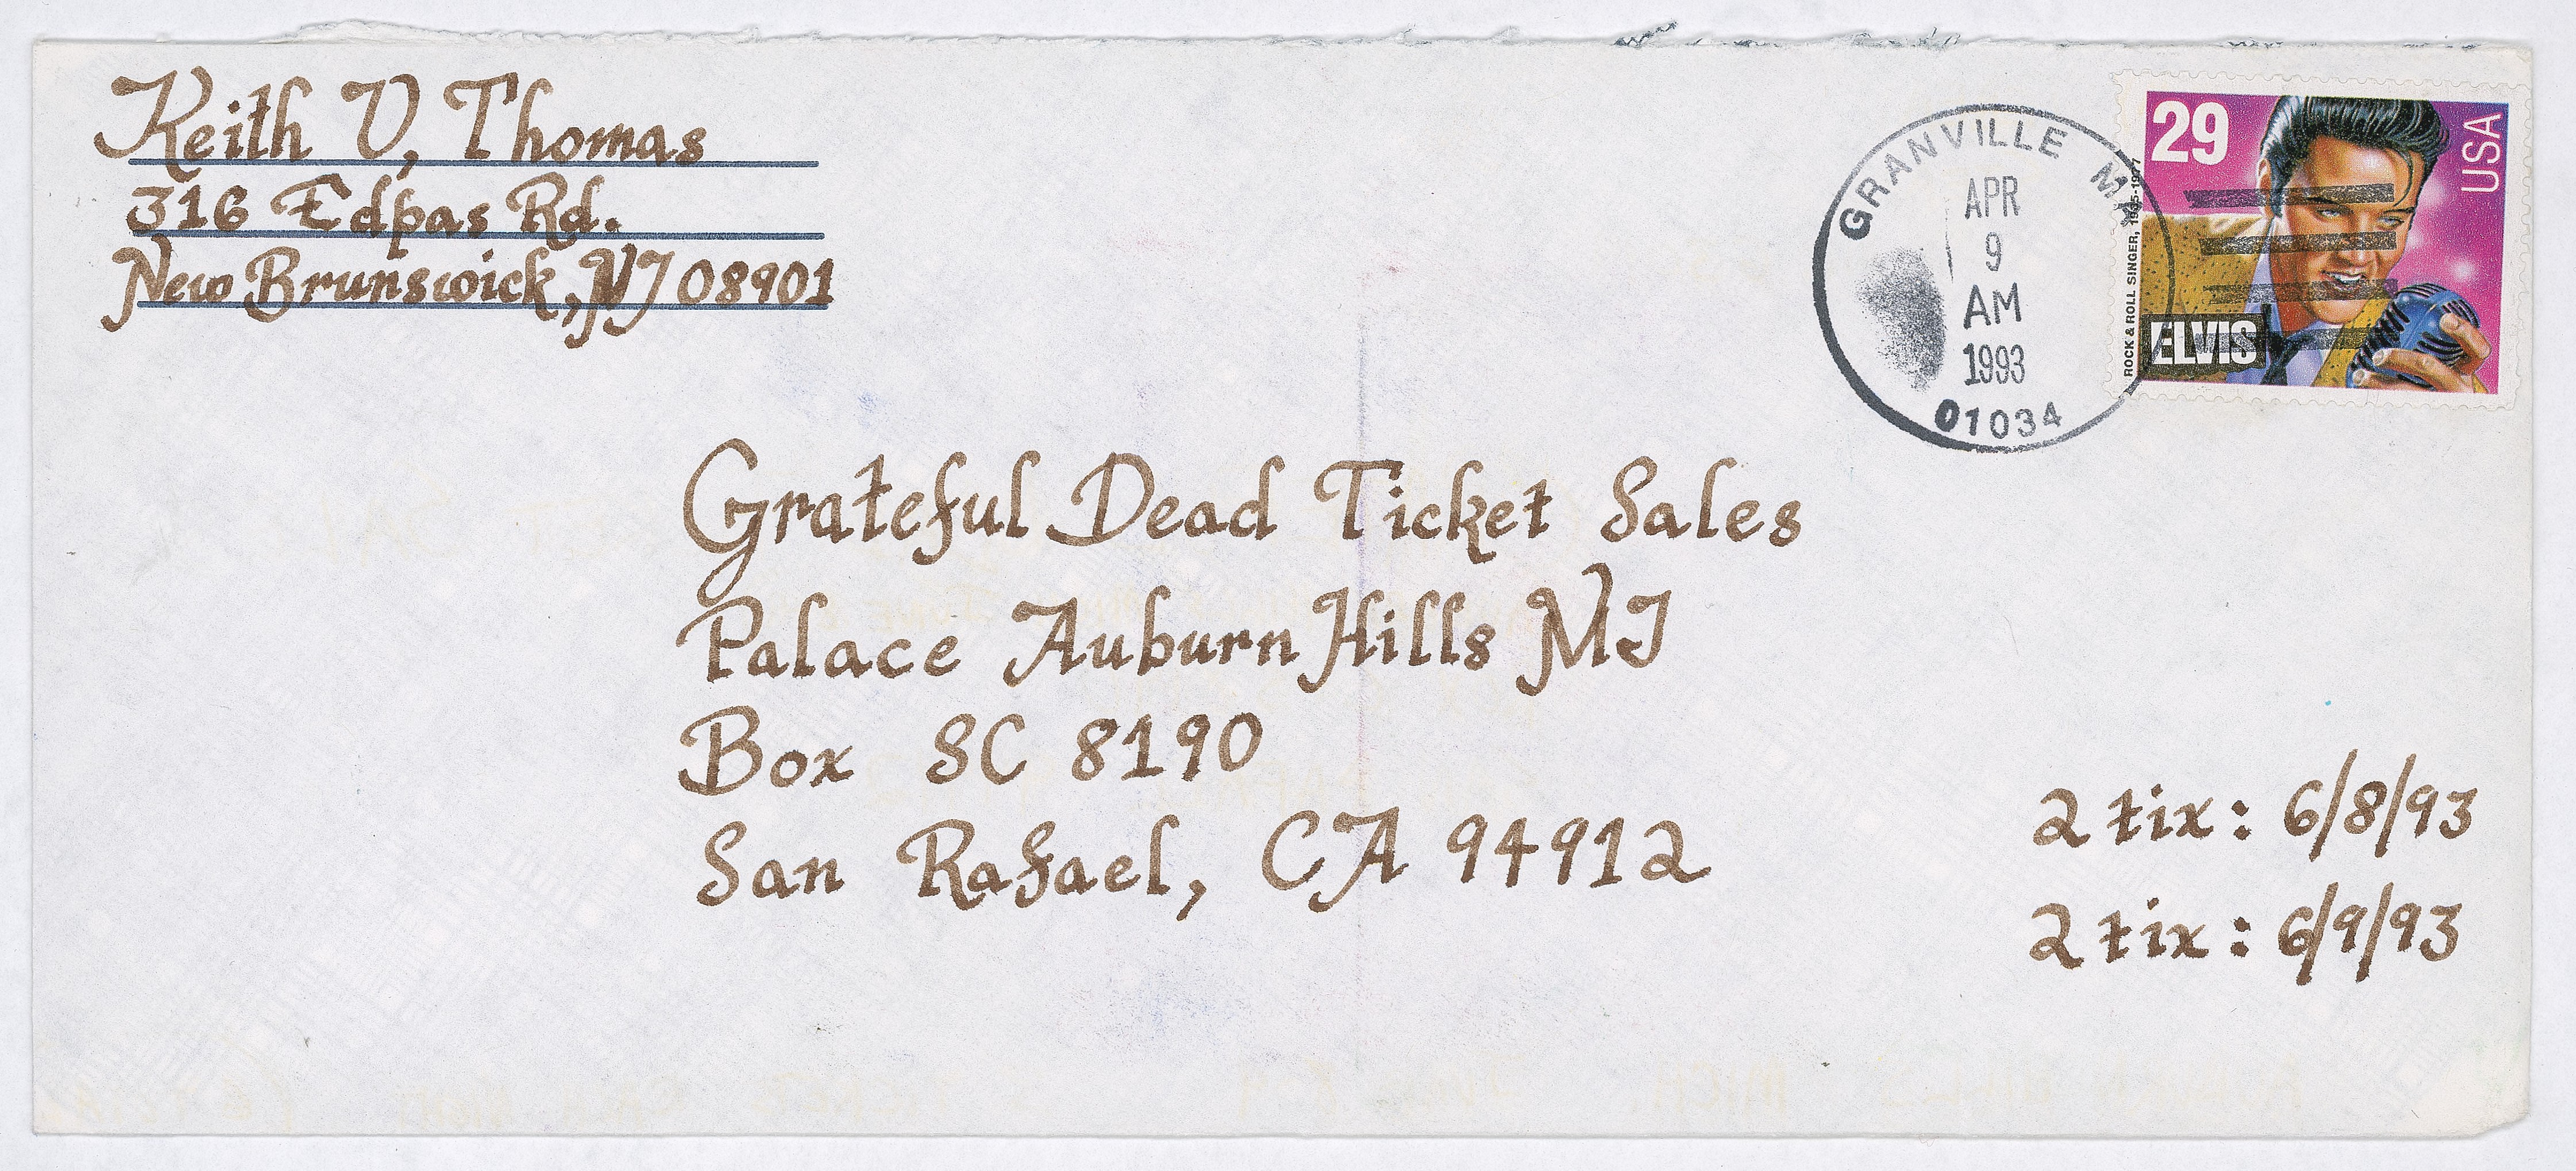 Keith V. Thomas
316 Edpas Rd.
New Brunswick, NJ 08901
GRANVILLE MA
APR
9
AM
1993
01034
29
USA
ROCK & ROLL SINGER, 1935-1977
ELVIS
Grateful Dead Ticket Sales
Palace Auburn Hills MI
Box SC 8190
San Rafael, CA 94912
2 tix: 6/8/93
2 tix: 6/9/93